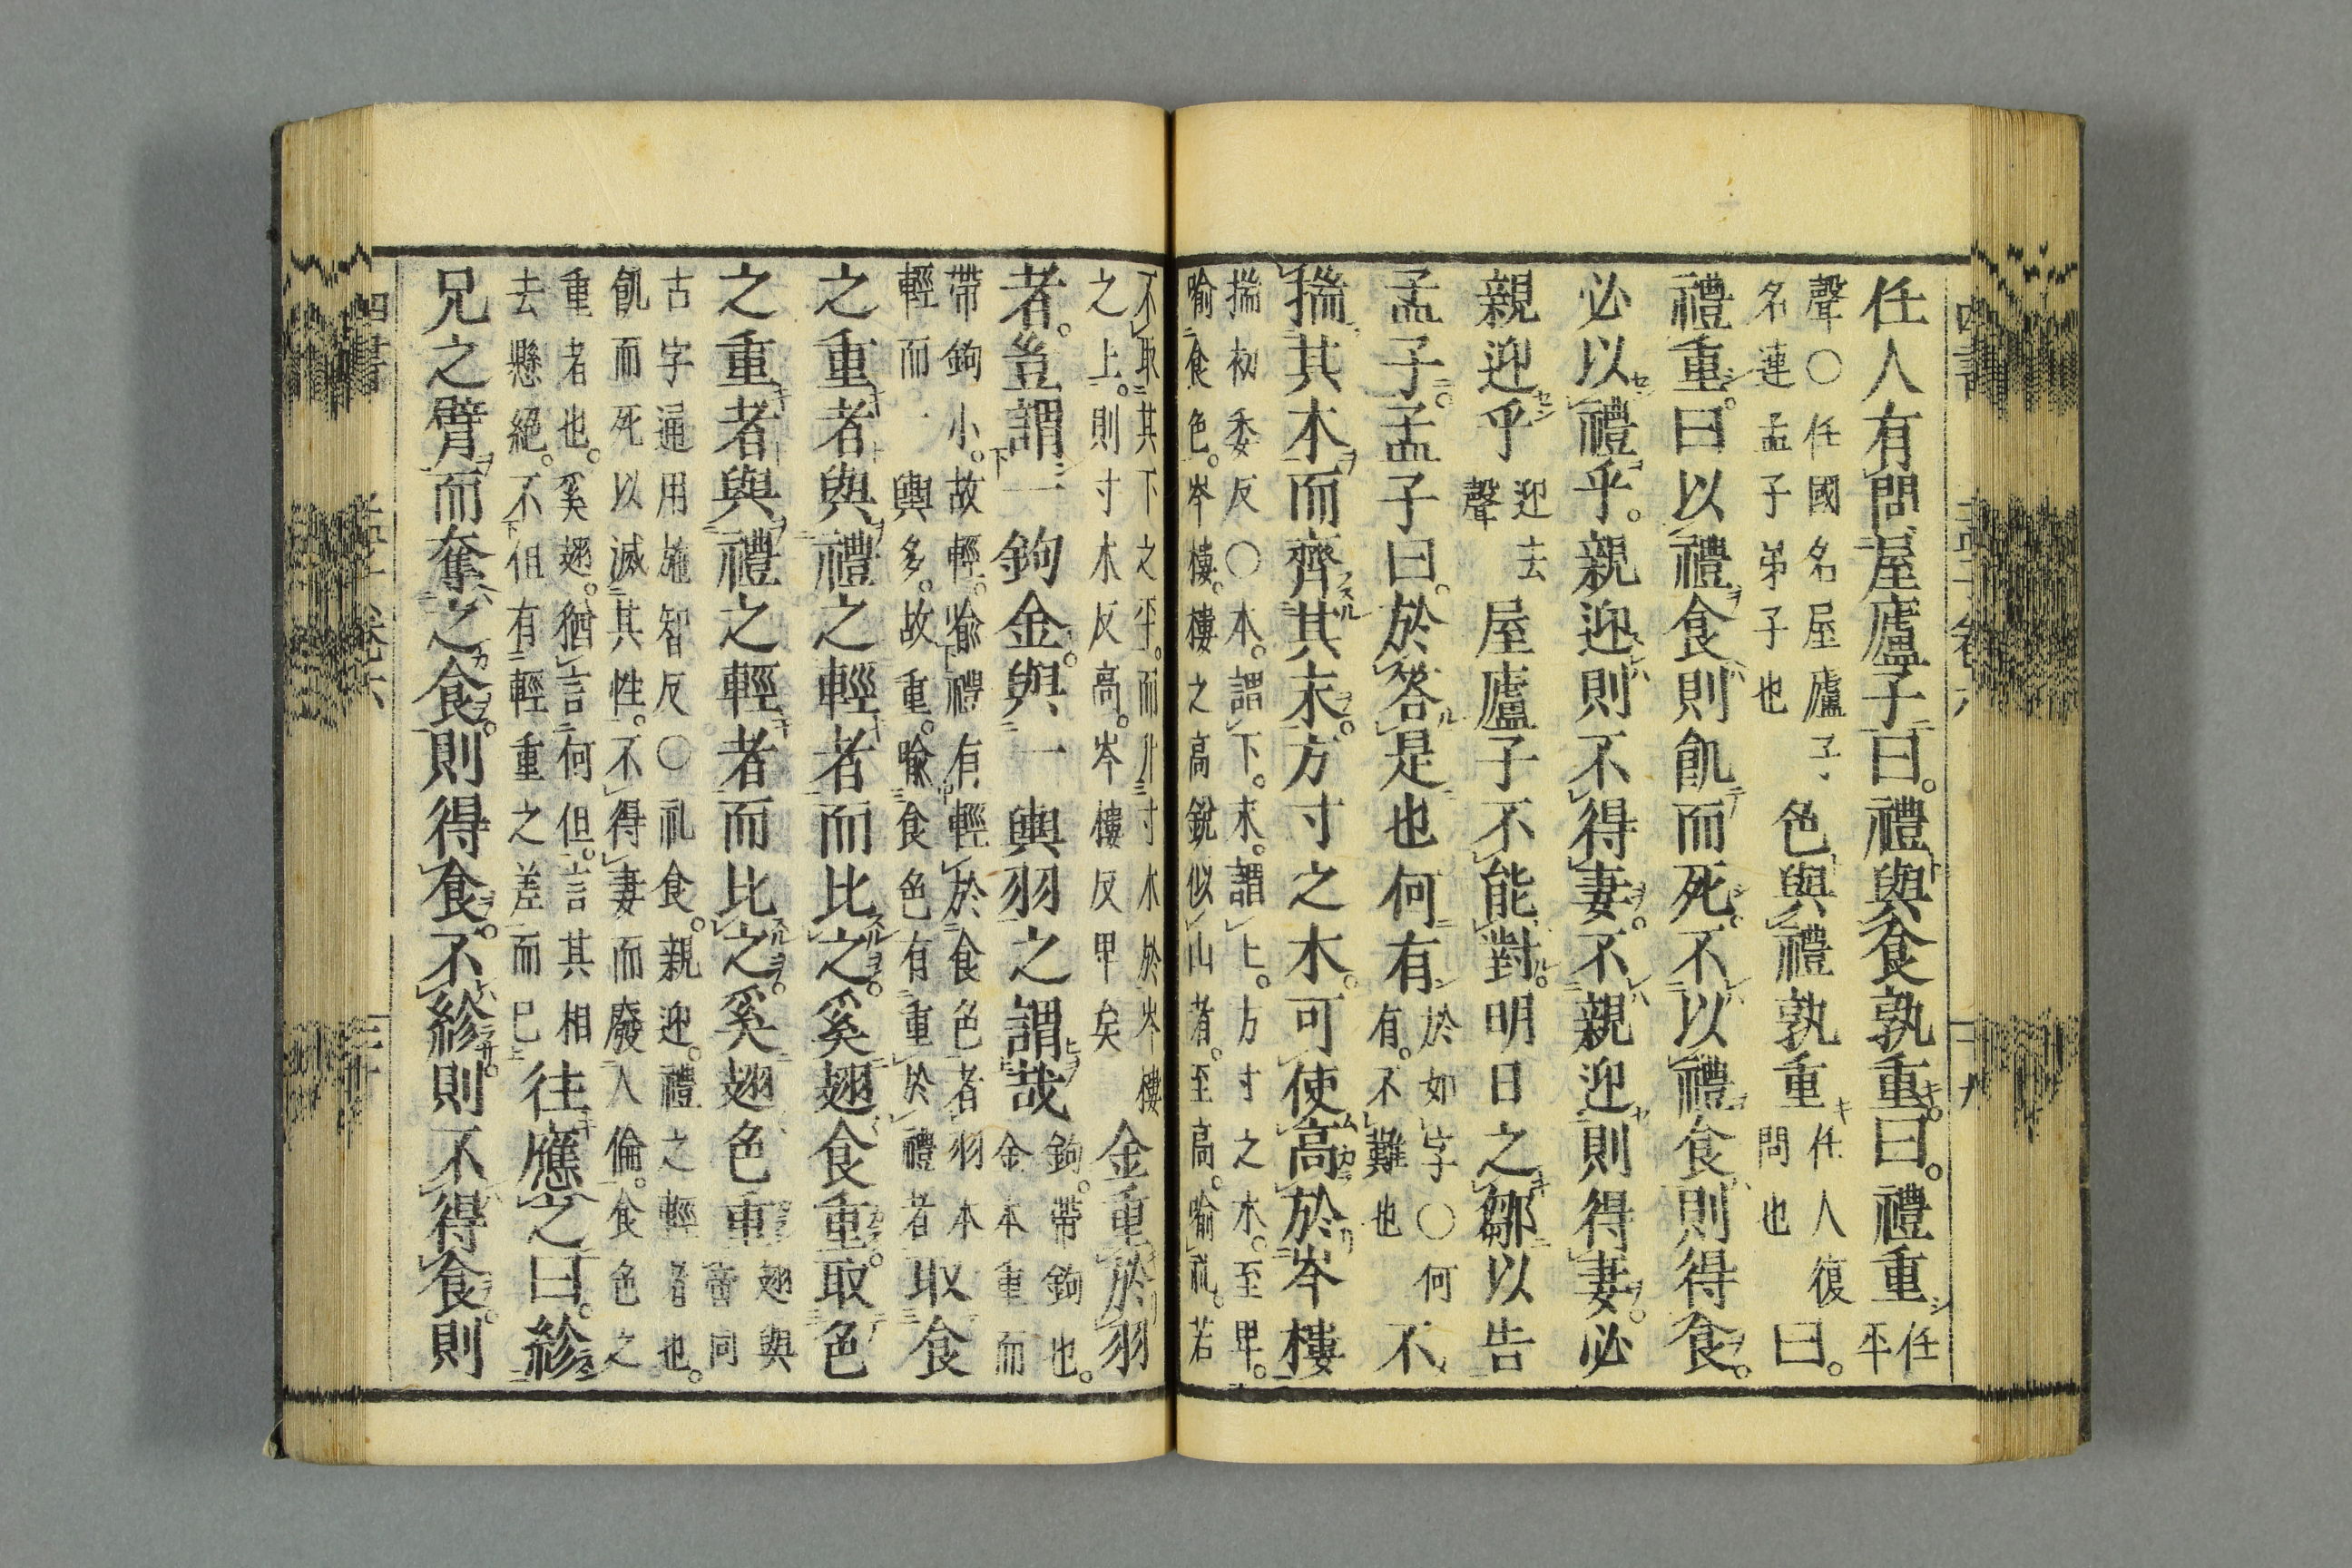 任人有問屋廬子曰。禮與食孰重。曰。禮重任平
聲○任國名屋廬子
名連孟子弟子也
色與禮孰重任人復問也曰。
禮重。曰以禮食則飢而死。不以禮食則得食。
必以禮乎。親迎則不得妻。不親迎則得妻。必
親迎乎迎去聲屋廬子不能對。明日之鄒以告
孟子。孟子曰。於答是也何有於如字○何有。不難也不
揣其本而齊其末。方寸之木。可使高於岑樓
揣初委反○本。謂下。末。謂上。方寸之木。至卑。
喻食色。岑樓。樓之高銳似山者。至高。喻礼。若
不取其下之平。而升寸木於岑樓
之上。則寸木反高。岑樓反卑矣
金重於羽
者。豈謂一鉤金。與一輿羽之謂哉鉤。帶鉤也。金本重而
帶鉤小。故輕。喻禮有輕於食色者羽本
輕而一輿多。故重。喻食色有重於禮者
取食
之重者與禮之輕者而比之。奚翅食重。取色
之重者與禮之輕者而比之。奚翅色重翅與啻同
古字通用施智反○礼食。親迎。禮之輕者也。
飢而死以滅其性。不得妻而廢人倫。食色之
重者也。奚翅。猶言何但。言其相
去懸絕。不但有輕重之差而已
往應之曰。紾
兄之臂而奪之食。則得食。不紾。則不得食。則
四書
孟子卷六